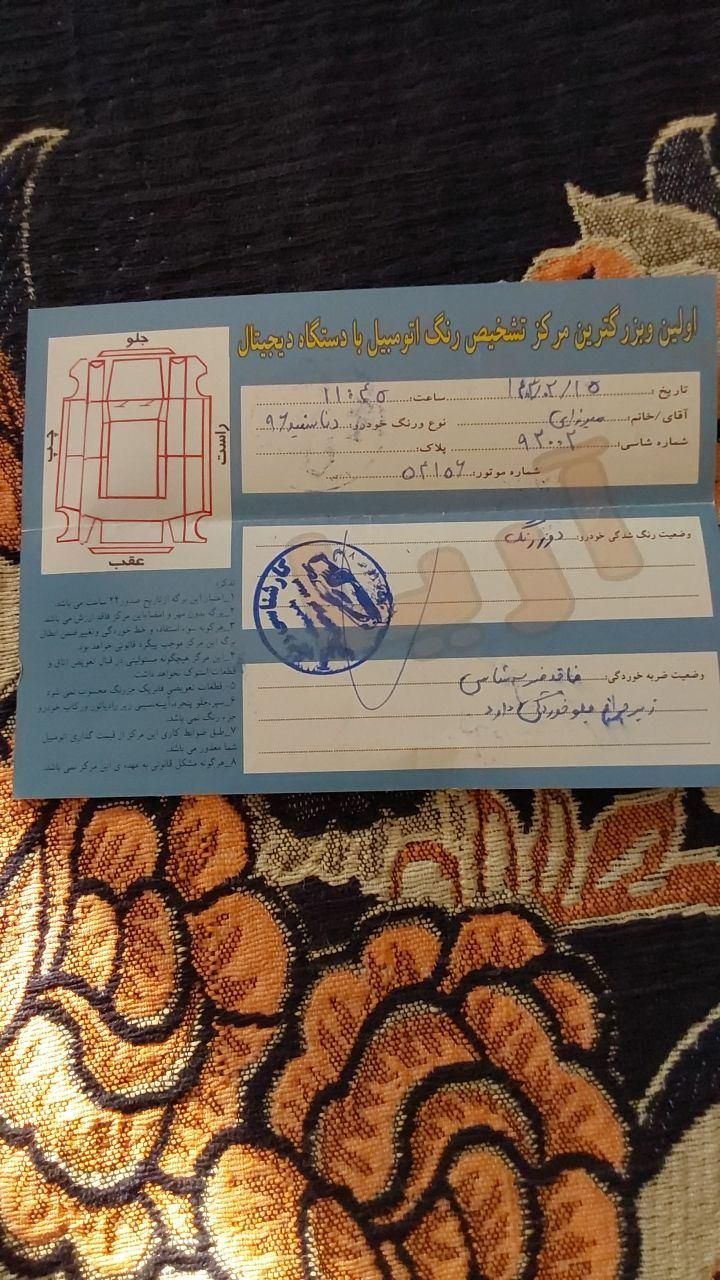 اولین وبزرگترین مرکز تشخیص رنگ اتومبیل با دستگاه دیجیتال
تاریخ: ساعت: ۱۱:۴۵
آقای/خانم: میرزایی نوع ورنگ خودرو: دنا سفید ۹۶
شماره شاسی: ۹۳۰۰۲ پلاک:
شماره موتور: ۵۲۱۵۶
وضعیت رنگ شدگی خودرو: دور رنگ
وضعیت ضربه خوردگی: فاقد ضربه شاسی
زیر چراغ جلو خوردگی دارد
جلو
چپ
راست
عقب
کارشناسی
آریا
تذکر:
۱_اعتبار این برگه از تاریخ صدور ۲۴ ساعت می باشد.
۲_برگه بدون مهر و امضاء این مرکز فاقد ارزش می باشد.
۳_هرگونه سوء استفاده و خط خوردگی و تغییر ضمن ابطال
برگ این مرکز موجب پیگرد قانونی خواهد بود.
۴_این مرکز هیچگونه مسئولیتی در قبال تعویض اتاق و
قطعات استوک نخواهد داشت.
۵- قطعات تعویضی فابریک جزرنگ محسوب نمی شود
۶_سپرجلو پنجره، آینه، سینی زیر رادیاتور ورکاب خودرو
جزء رنگ نمی باشد.
۷_طبق ضوابط کاری این مرکز از قیمت گذاری اتومبیل
شما معذور می باشد.
۸_هرگونه مشکل قانونی به عهده ی این مرکز نمی باشد.